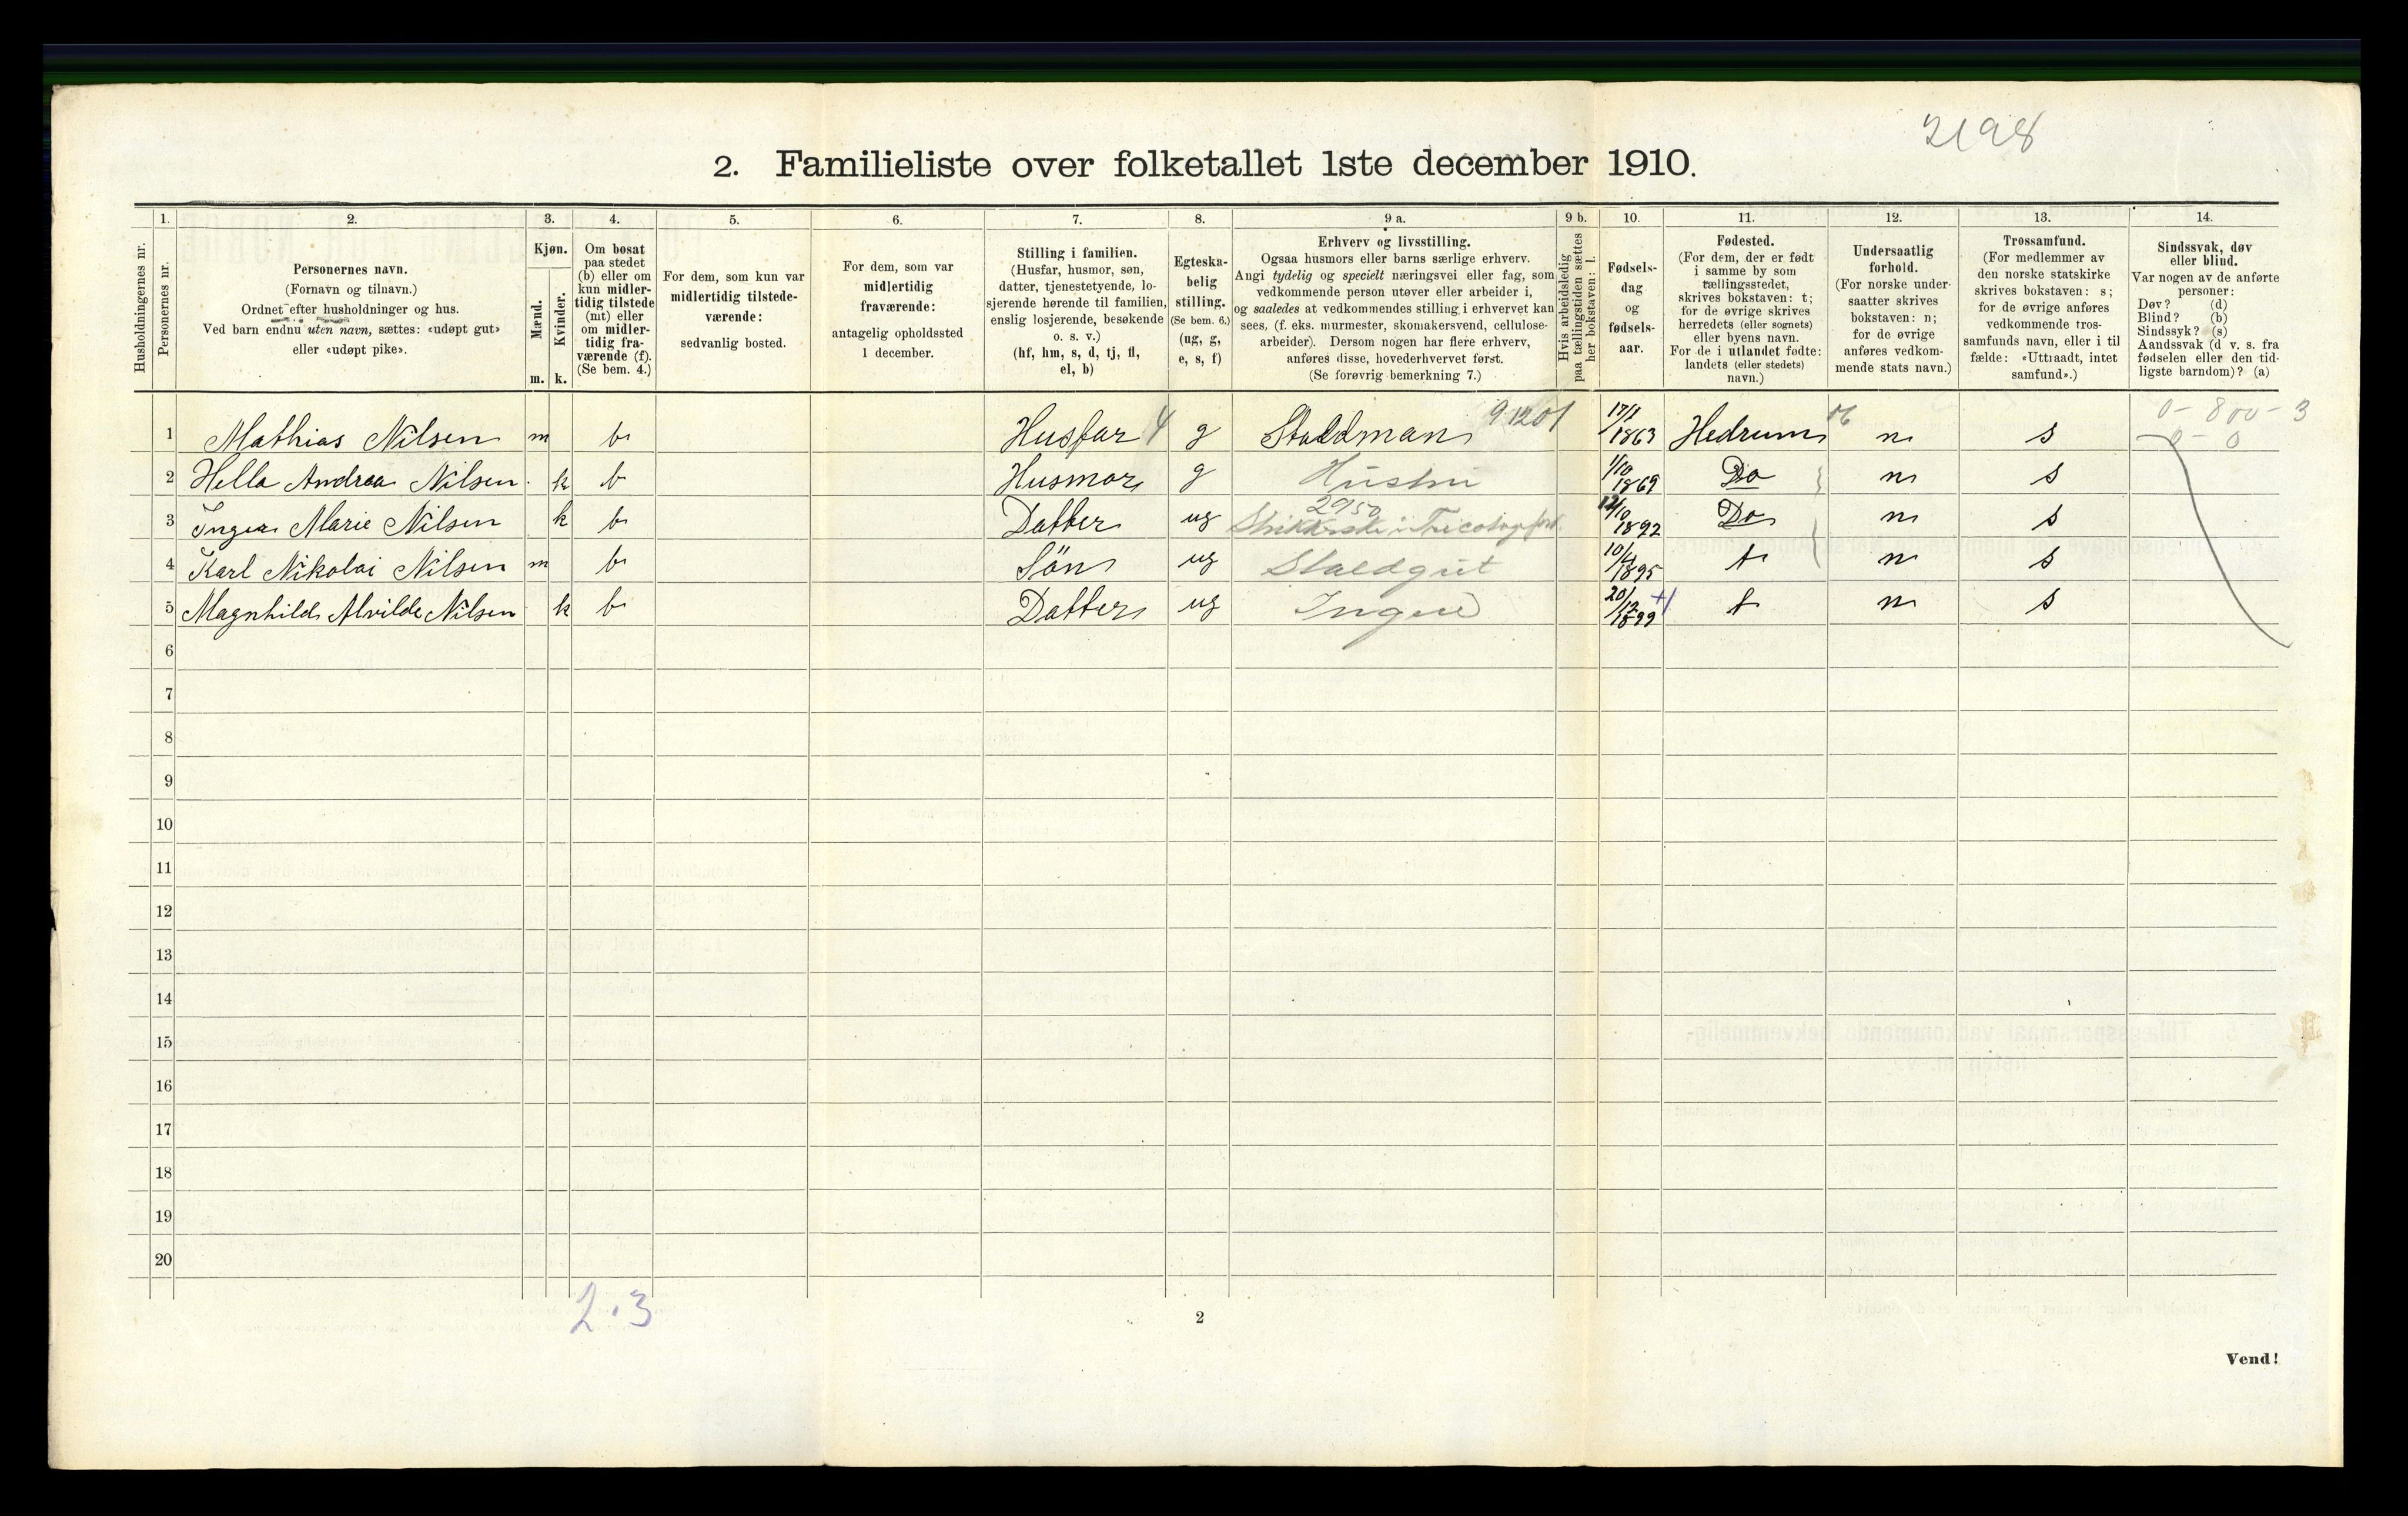 2198
2. Familieliste over folketallet 1ste december 1910.
1. 2. 3. 4. 5. 6. 7. 8. 9 a. 9 b. 10. 11. 12. 13. 14.
Husholdningernes nr.
Personernes nr.
Personernes navn.
(Fornavn og tilnavn.)
Ordnet efter husholdninger og hus.
Ved barn endnu uten navn, sættes: «udøpt gut»
eller «udøpt pike».
Kjøn.
Mænd.
Kvinder.
m. k.
Om bosat
paa stedet
(b) eller om
kun midler-
tidig tilstede
(mt) eller
om midler-
tidig fra-
værende (f).
(Se bem. 4.)
For dem, som kun var
midlertidig tilstede-
værende:
sedvanlig bosted.
For dem, som var
midlertidig
fraværende:
antagelig opholdssted
1 december.
Stilling i familien.
(Husfar, husmor, søn,
datter, tjenestetyende, lo-
sjerende hørende til familien,
enslig losjerende, besøkende
o. s. v.)
(hf, hm, s, d, tj, fl,
el, b)
Egteska-
belig
stilling.
(Se bem. 6.)
(ug, g,
e, s, f)
Erhverv og livsstilling.
Ogsaa husmors eller barns særlige erhverv.
Angi tydelig og specielt næringsvei eller fag, som
vedkommende person utøver eller arbeider i,
og saaledes at vedkommendes stilling i erhvervet kan
sees, (f. eks. murmester, skomakersvend, cellulose-
arbeider). Dersom nogen har flere erhverv,
anføres disse, hovederhvervet først.
(Se forøvrig bemerkning 7.)
Hvis arbeidsledig
paa tællingstiden sættes
her bokstaven: l.
Fødsels-
dag
og
fødsels-
aar.
Fødested.
(For dem, der er født
i samme by som
tællingsstedet,
skrives bokstaven: t;
for de øvrige skrives
herredets (eller sognets)
eller byens navn.
For de i utlandet fødte:
landets (eller stedets)
navn.)
Undersaatlig
forhold.
(For norske under-
saatter skrives
bokstaven: n;
for de øvrige
anføres vedkom-
mende stats navn.)
Trossamfund.
(For medlemmer av
den norske statskirke
skrives bokstaven: s;
for de øvrige anføres
vedkommende tros-
samfunds navn, eller i til
fælde: «Uttraadt, intet
samfund».)
Sindssvak, døv
eller blind.
Var nogen av de anførte
personer:
Døv? (d)
Blind? (b)
Sindssyk? (s)
Aandssvak (d v. s. fra
fødselen eller den tid-
ligste barndom)? (a)
1 Mathias Nilsen m b Husfar 4 g Staldman 9 1201 17/1 1863 Hedrum n s 0-800-3
0-0
2 Hella Andrea Nilsen k b Husmor g Hustru 1/10 1869 Do n s
3 Inger Marie Nilsen k b Datter ug 2950 Strikkerske i Tricotagefabr. 12/10 1892 Do n s
4 Karl Nikolai Nilsen m b Sön ug Staldgut 10/4 1895 t n s
5 Magnhild Alvilde Nilsen k b Datter ug Ingen 20/12 1899 t n s
6
7
8
9
10
11
12
13
14
15
16
17
18
19
20
2.3
2
Vend!